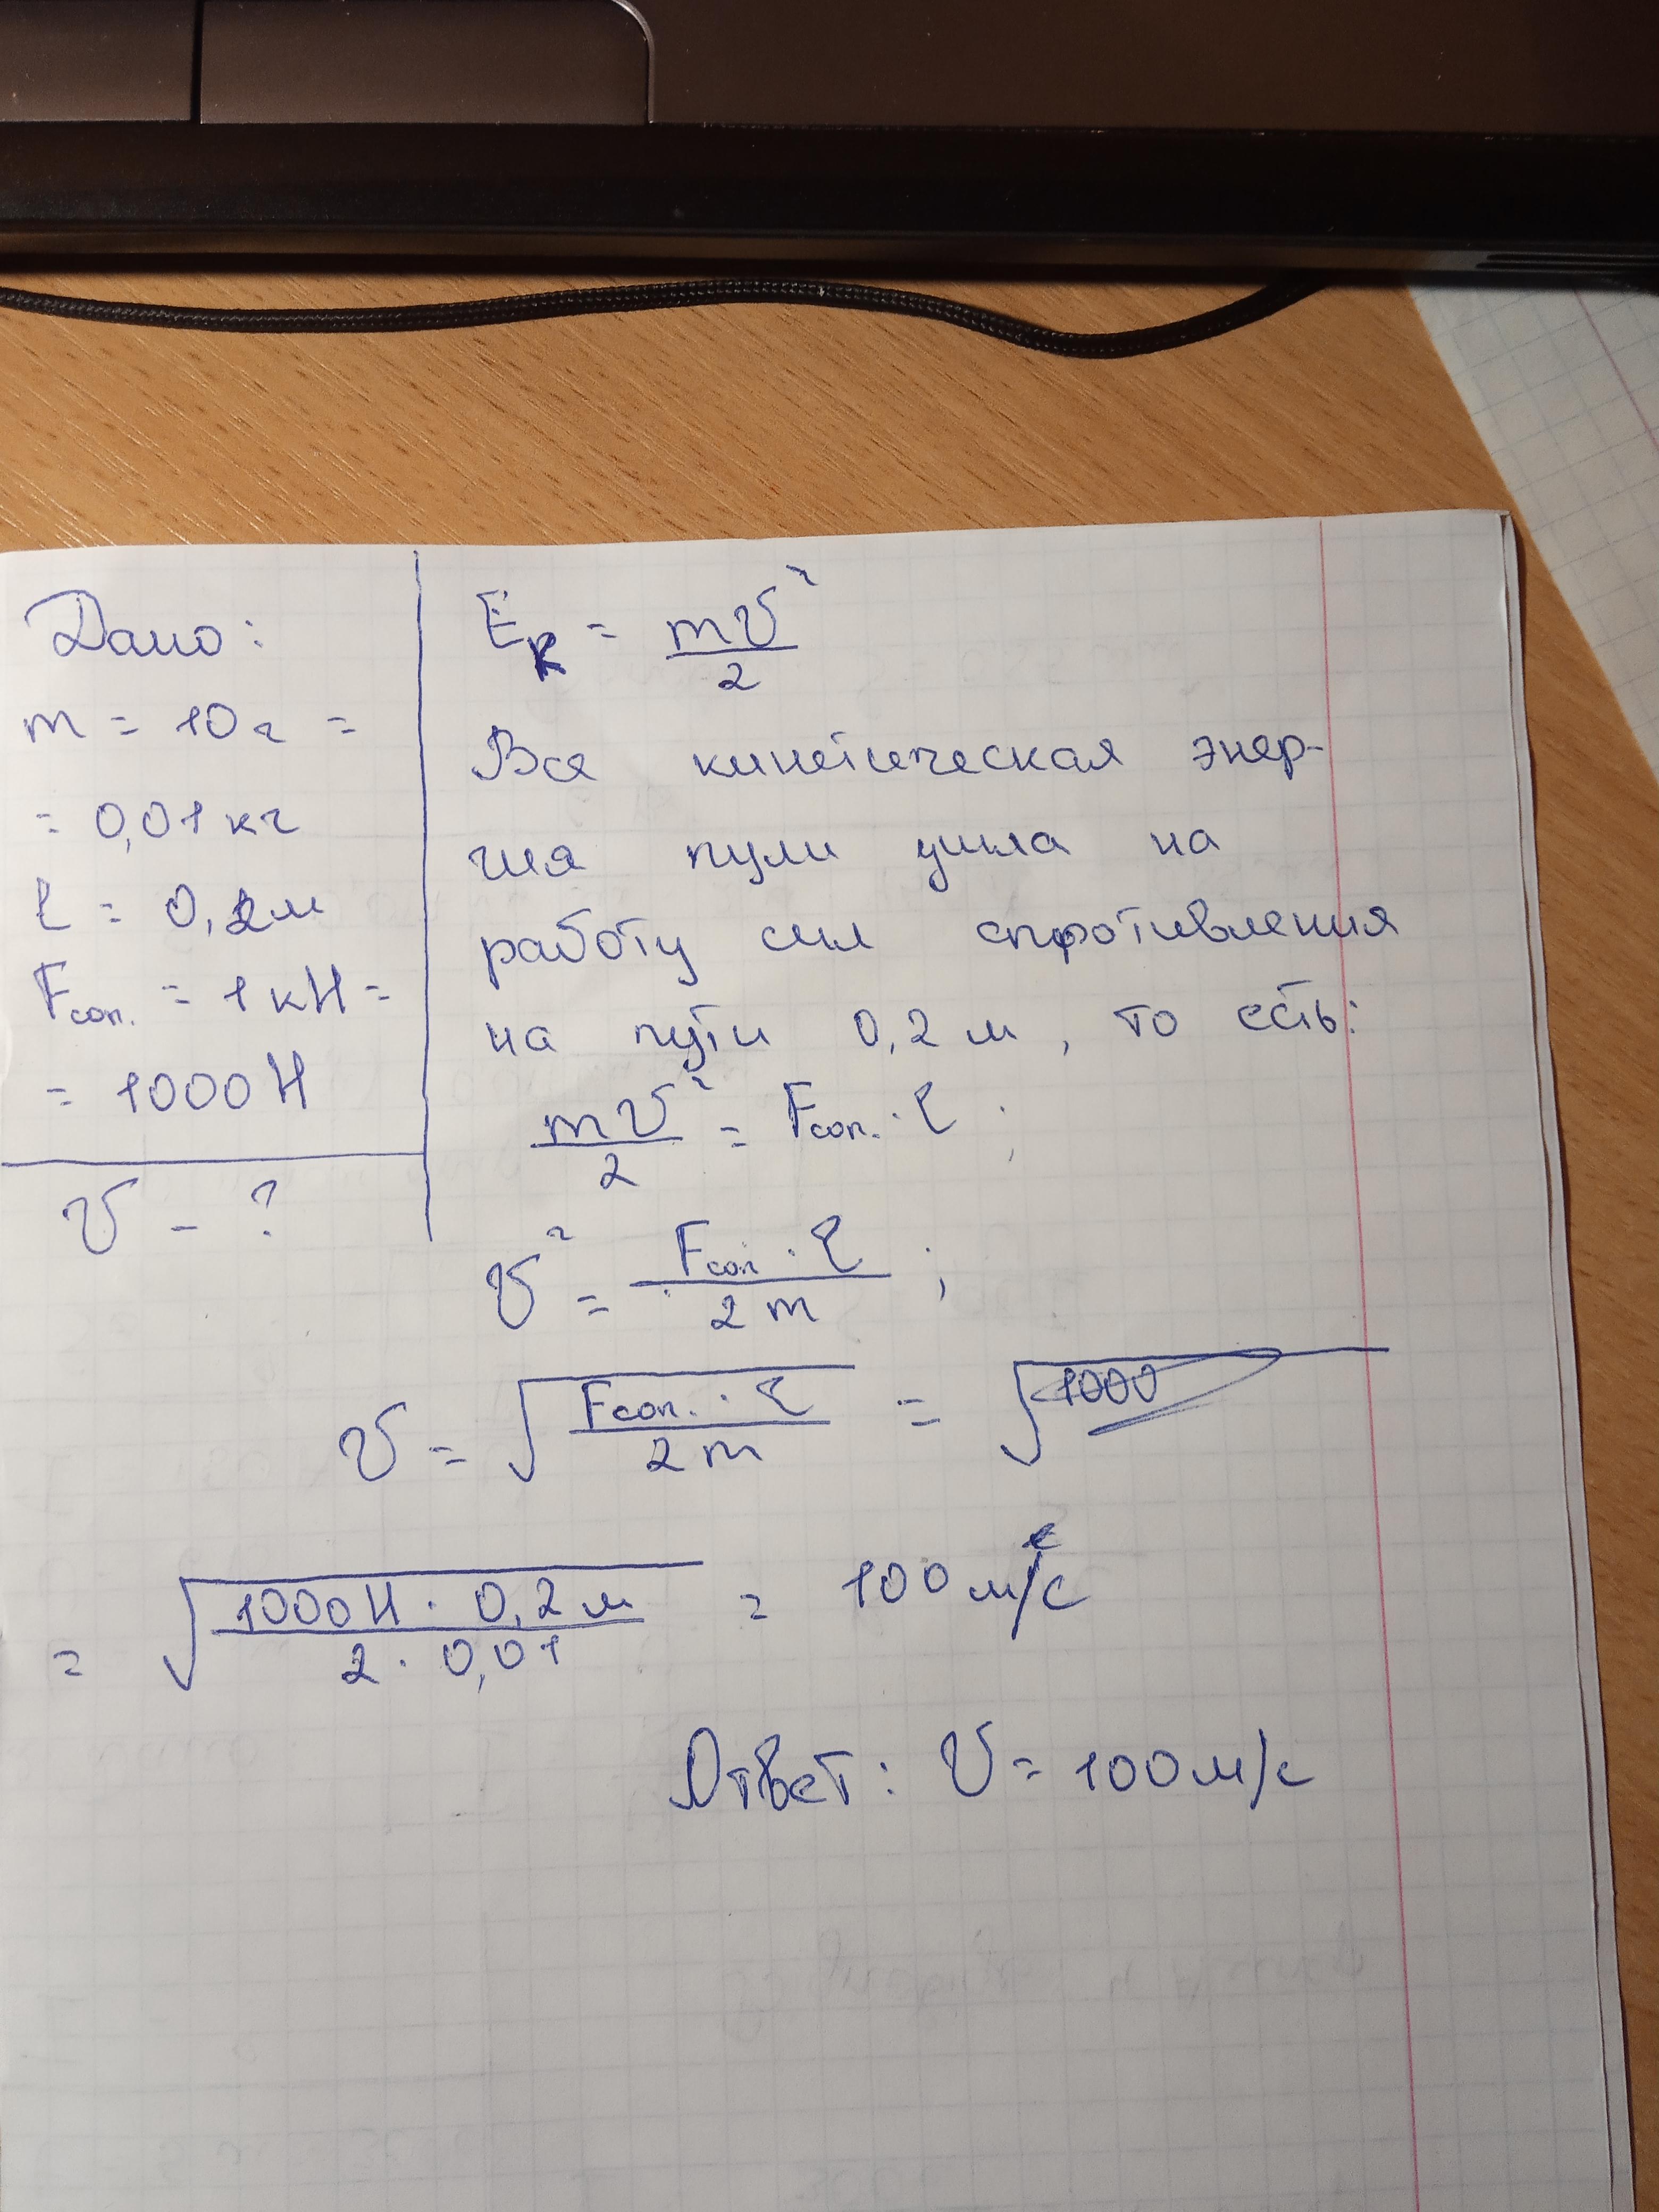 Дано:
m = 10г =
= 0,01кг
l = 0,2м
Fсоп. = 1кН =
= 1000Н
v - ?
Eк = mv²/2
Вся кинетическая энер-
гия пули ушла на
работу сил спротивления
на пути 0,2м, то есть:
mv²/2 = Fсоп. · l ;
v² = Fсоп · l / 2m ;
v = √(Fсоп. · l / 2m) = √1000
= √(1000Н · 0,2м / 2 · 0,01) = 100м/с
Ответ: v = 100м/с